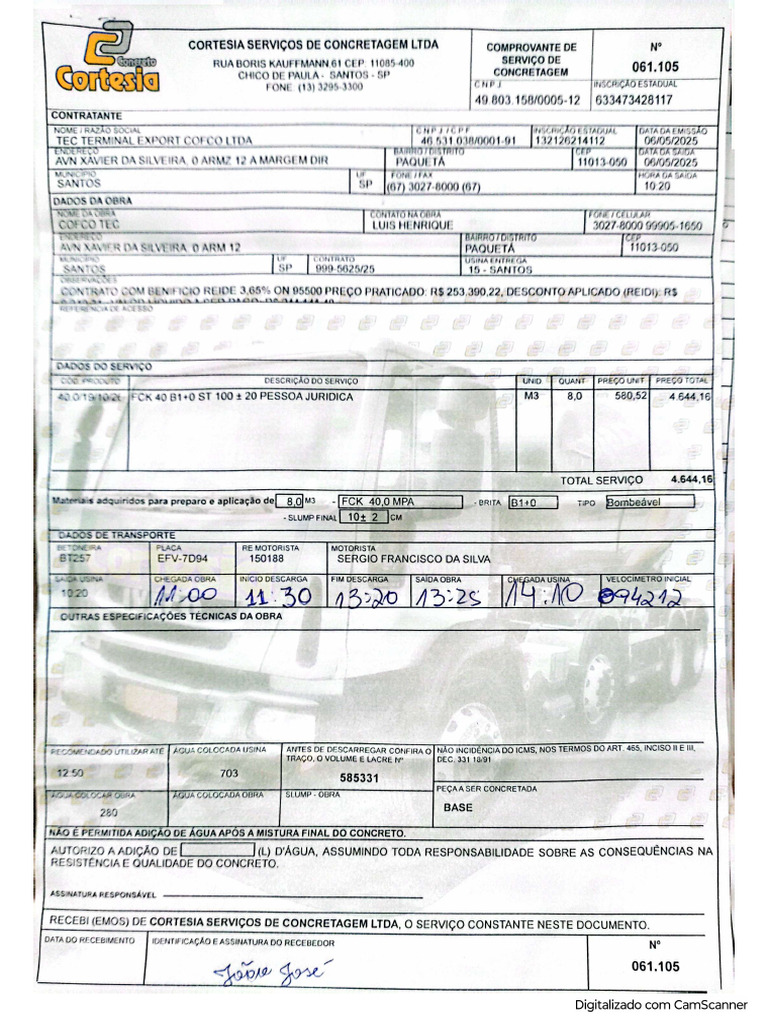 Concreto
Cortesia
CORTESIA SERVIÇOS DE CONCRETAGEM LTDA
RUA BORIS KAUFFMANN 61 CEP: 11085-400
CHICO DE PAULA - SANTOS - SP
FONE: (13) 3295-3300
COMPROVANTE DE
SERVIÇO DE
CONCRETAGEM
Nº
061.105
CNPJ
49 803.158/0005-12
INSCRIÇÃO ESTADUAL
633473428117
CONTRATANTE
NOME / RAZÃO SOCIAL
TEC TERMINAL EXPORT COFCO LTDA
CNPJ / CPF
46 531 038/0001-91
INSCRIÇÃO ESTADUAL
132126214112
DATA DA EMISSÃO
06/05/2025
ENDEREÇO
AVN XAVIER DA SILVEIRA, 0 ARMZ 12 A MARGEM DIR
BAIRRO / DISTRITO
PAQUETÁ
CEP
11013-050
DATA DA SAÍDA
06/05/2025
MUNICÍPIO
SANTOS
UF
SP
FONE / FAX
(67) 3027-8000 (67)
HORA DA SAÍDA
10:20
DADOS DA OBRA
NOME DA OBRA
COFCO TEC
CONTATO NA OBRA
LUIS HENRIQUE
FONE / CELULAR
3027-8000 99905-1650
ENDEREÇO
AVN XAVIER DA SILVEIRA, 0 ARM 12
BAIRRO / DISTRITO
PAQUETÁ
CEP
11013-050
MUNICÍPIO
SANTOS
UF
SP
CONTRATO
999-5625/25
USINA ENTREGA
15 - SANTOS
OBSERVAÇÕES
CONTRATO COM BENIFICIO REIDE 3,65% ON 95500 PREÇO PRATICADO: R$ 253.390,22, DESCONTO APLICADO (REIDI): R$
REFERENCIA DE ACESSO
DADOS DO SERVIÇO
COD. PRODUTO DESCRIÇÃO DO SERVIÇO UNID QUANT PREÇO UNIT PREÇO TOTAL
40.0/19/10/26 FCK 40 B1+0 ST 100 ± 20 PESSOA JURIDICA M3 8,0 580,52 4.644,16
TOTAL SERVIÇO 4.644,16
Materiais adquiridos para preparo e aplicação de 8,0 M3 - FCK 40,0 MPA - BRITA B1+0 TIPO Bombeável
- SLUMP FINAL 10± 2 CM
DADOS DE TRANSPORTE
BETONEIRA
BT257
PLACA
EFV-7D94
RE MOTORISTA
150188
MOTORISTA
SERGIO FRANCISCO DA SILVA
SAÍDA USINA
10:20
CHEGADA OBRA
11:00
INICIO DESCARGA
11:30
FIM DESCARGA
13:20
SAÍDA OBRA
13:25
CHEGADA USINA
14:10
VELOCIMETRO INICIAL
094212
OUTRAS ESPECIFICAÇÕES TÉCNICAS DA OBRA
RECOMENDADO UTILIZAR ATÉ
12:50
ÁGUA COLOCADA USINA
703
ANTES DE DESCARREGAR CONFIRA O
TRAÇO, O VOLUME E LACRE Nº
585331
NÃO INCIDÊNCIA DO ICMS, NOS TERMOS DO ART. 465, INCISO II E III,
DEC. 331 18/91
ÁGUA COLOCAR OBRA
280
ÁGUA COLOCADA OBRA
SLUMP - OBRA
PEÇA A SER CONCRETADA
BASE
NÃO É PERMITIDA ADIÇÃO DE ÁGUA APÓS A MISTURA FINAL DO CONCRETO.
AUTORIZO A ADIÇÃO DE (L) D'ÁGUA, ASSUMINDO TODA RESPONSABILIDADE SOBRE AS CONSEQUÊNCIAS NA
RESISTÊNCIA E QUALIDADE DO CONCRETO.
ASSINATURA RESPONSÁVEL
RECEBI (EMOS) DE CORTESIA SERVIÇOS DE CONCRETAGEM LTDA, O SERVIÇO CONSTANTE NESTE DOCUMENTO.
DATA DO RECEBIMENTO
IDENTIFICAÇÃO E ASSINATURA DO RECEBEDOR
José
Nº
061.105
Digitalizado com CamScanner